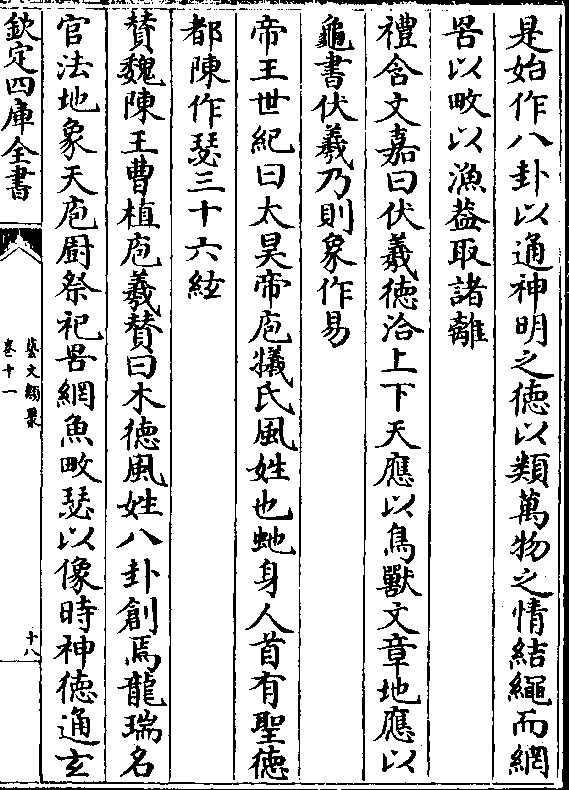 是始作八卦以通神明之德以類萬物之情結繩而網
罟以畋以漁葢取諸離
禮含文嘉曰伏羲德洽上下天應以鳥獸文章地應以
龜書伏羲乃則象作易
帝王世紀曰太昊帝庖犧氏風姓也虵身人首有聖德
都陳作瑟三十六絃
贊魏陳王曹植庖羲贊曰木德風姓八卦創焉龍瑞名
官法地象天庖厨祭祀罟網魚畋瑟以像時神德通玄
欽定四庫全書
藝文類聚
卷十一
十八